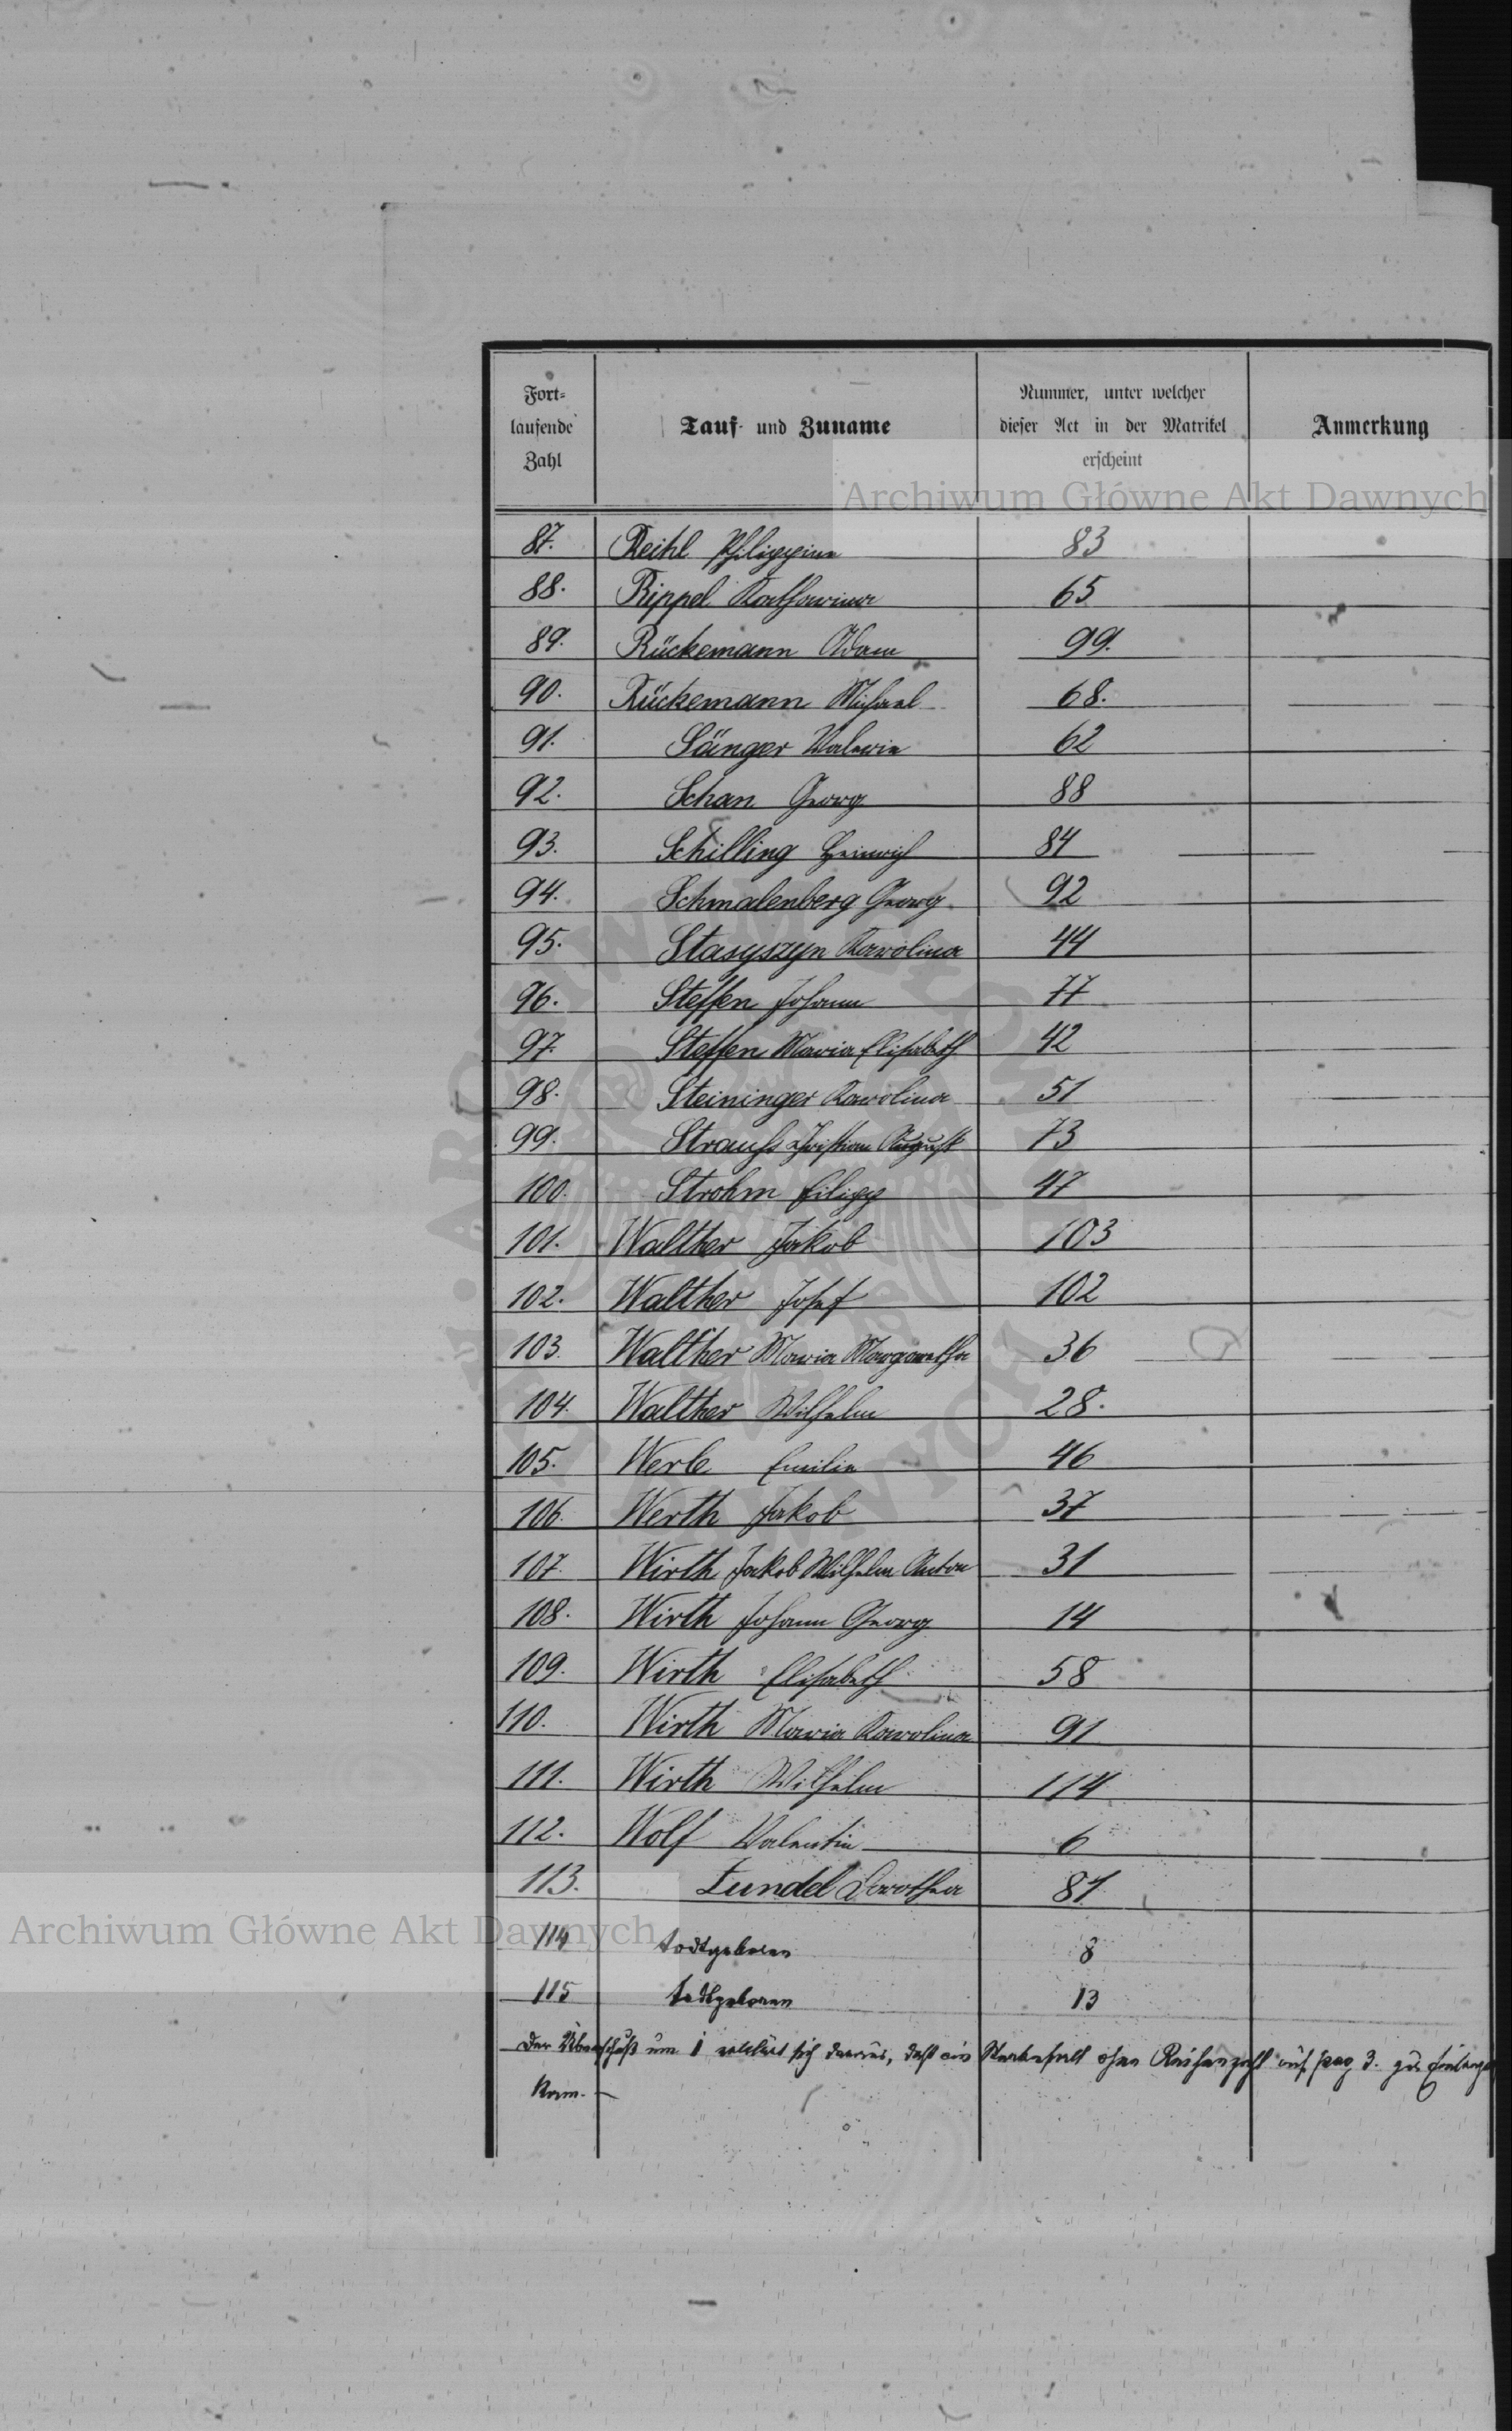 Fort-
laufende
Zahl
Tauf- und Zuname
Nummer, unter welcher
dieser Act in der Matrikel
erscheint
Anmerkung
Archiwum Główne Akt Dawnych
87. Reihl Philippine 83
88. Rippel Katharina 65
89. Rückemann Adam 99.
90. Rückemann Michael 68.
91. Sänger Valerie 62
92. Schan Georg 88
93. Schilling Heinrich 84
94. Schmalenberg Georg 92
95. Stasyszyn Karolina 44
96. Steffen Johann 77
97. Steffen Maria Elisabeth 42
98. Steininger Karolina 51
99. Strauss Christian August 73
100. Strohm Filipp 47
101. Walther Jakob 103
102. Walther Josef 102
103. Walther Maria Margaretha 36
104. Walther Wilhelm 28.
105. Werle Emilie 46
106. Werth Jakob 37
107. Wirth Jakob Wilhelm Anton 31
108. Wirth Johann Georg 14
109. Wirth Elisabeth 58
110. Wirth Maria Karolina 91
111. Wirth Wilhelm 114
112. Wolf Valentin 6
113. Dorothea
Archiwum Główne Akt Dawnych
114 todtgeboren 8
115 todtgeboren 13
Der Überschuß um 1 erklärt sich daraus, daß ein Sterbefall ohne Reihenzahl auf pag 3. zur
kam.